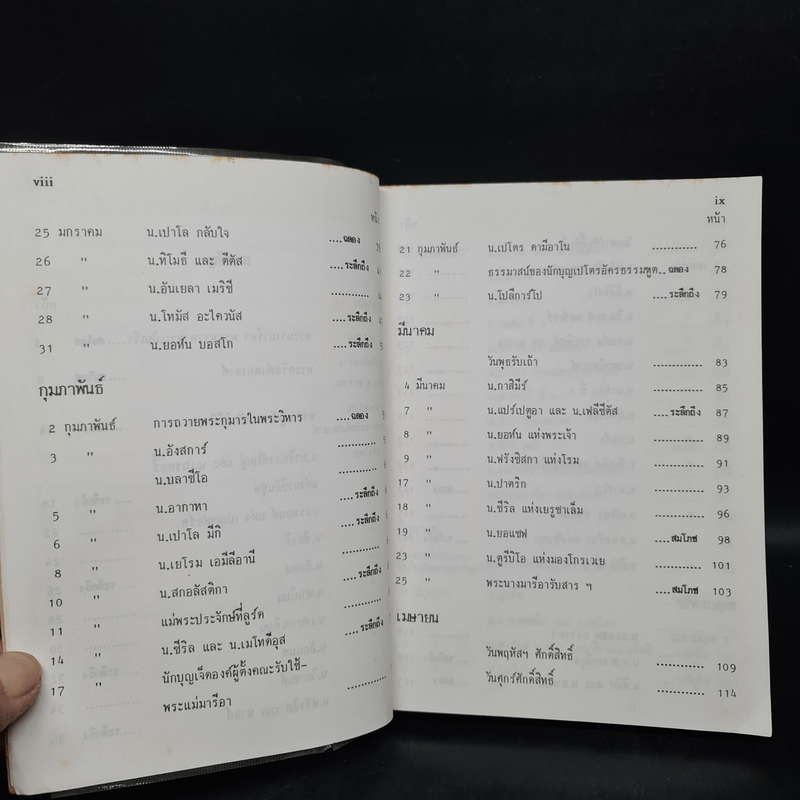 viii
25 มกราคม น.เปาโล กลับใจ ....ฉลอง
26 " น.ทิโมธี และ ตีตัส ....ระลึกถึง
27 " น.อันเยลา เมริชี ...........
28 " น.โทมัส อะไควนัส ....ระลึกถึง
31 " น.ยอห์น บอสโก ....ระลึกถึง
กุมภาพันธ์
2 กุมภาพันธ์ การถวายพระกุมารในพระวิหาร ....ฉลอง
3 " น.อังสการ์ ...........
น.บลาซีโอ ...........
5 " น.อากาทา ....ระลึกถึง
6 " น.เปาโล มีกิ ....ระลึกถึง
8 " น.เยโรม เอมีลีอานี ...........
10 " น.สกอลัสติกา ....ระลึกถึง
11 " แม่พระประจักษ์ที่ลูร์ด ...........
14 " น.ซีริล และ น.เมโทดีอุส ....ระลึกถึง
17 " นักบุญเจ็ดองค์ผู้ตั้งคณะรับใช้-
พระแม่มารีอา ...........
ix
หน้า
21 กุมภาพันธ์ น.เปโตร ดามีอาโน ........... 76
22 " ธรรมาสน์ของนักบุญเปโตรอัครธรรมฑูต..ฉลอง 78
23 " น.โปลีการ์โป ....ระลึกถึง 79
มีนาคม
วันพุธรับเถ้า ........... 83
4 มีนาคม น.กาสิมีร์ ........... 85
7 " น.แปร์เปตูอา และ น.เฟลีซีตัส ....ระลึกถึง 87
8 " น.ยอห์น แห่งพระเจ้า ........... 89
9 " น.ฟรังซิสกา แห่งโรม ........... 91
17 " น.ปาตริก ........... 93
18 " น.ซีริล แห่งเยรูซาเล็ม ........... 96
19 " น.ยอแซฟ ....สมโภช 98
23 " น.ตูรีบิโอ แห่งมองโกรเวเย ........... 101
25 " พระนางมารีอารับสาร ฯ ....สมโภช 103
เมษายน
วันพฤหัสฯ ศักดิ์สิทธิ์ ........... 109
วันศุกร์ศักดิ์สิทธิ์ ........... 114